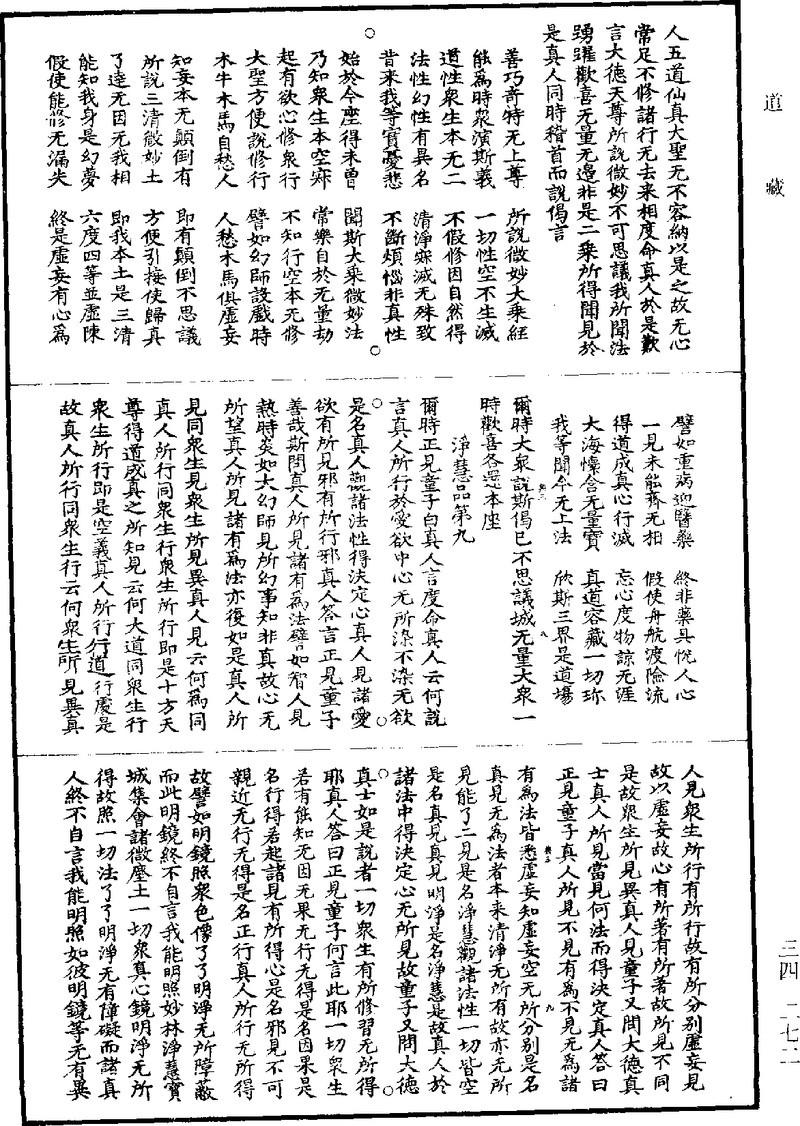 道藏
三四 二七二
人五道仙真大聖无不容納以是之故无心
常足不修諸行无去来相度命真人於是歎
言大德天尊所說微妙不可思議我所聞法
踴躍歡喜无量无邊非是二乗所得聞見於
是真人同時稽首而說偈言
善巧奇特无上尊 所說微妙大乗經
能為時衆演斯義 一切性空不生滅
道性衆生本无二 不假修因自然得
法性幻性有異名 清淨寂滅无殊致
昔来我等實憂悲 不斷煩惱非真性
始於今座得未曾 聞斯大乗微妙法
乃知衆生本空寂 常樂自於无量劫
起有欲心修衆行 不知行空本无修
大聖方便說修行 譬如幻師設戲時
木牛木馬自愁人 人愁木馬俱虛妄
知妄本无顛倒有 即有顛倒不思議
所說三清微妙土 方便引接使歸真
了達无因无我相 即我本土是三清
能知我身是幻夢 六度四等並虛陳
假使能修无漏失 終是虛妄有心為
譬如重病迎醫藥 終非藥具悅人心
一見未能齊无相 假使舟航渡險流
得道成真心行滅 忘心度物諒无涯
大海懍含无量寶 真道容藏一切珎
我等聞今无上法 欣斯三界是道場
爾時大衆說斯偈已不思議城无量大衆一
時歡喜各還本座
淨慧品第九
爾時正見童子白真人言度命真人云何說
言真人所行於愛欲中心无所染不染无欲
是名真人觀諸法性得決定心真人見諸愛
欲有所見邪有所行邪真人答言正見童子
善哉斯問真人所見諸有為法譬如智人見
熱時炎如大幻師見所幻事知非真故心无
所望真人所見諸有為法亦復如是真人所
見同衆生見衆生所見異真人見云何為同
真人所行同衆生行衆生所行即是十方天
尊得道成真之所知見云何大道同衆生行
衆生所行即是空義真人所行行道行處是
故真人所行同衆生行云何衆生所見異真
人見衆生所行有所行故有所分别虛妄見
故以虛妄故心有所著有所著故所見不同
是故衆生所見異真人見童子又問大德真
士真人所見當見何法而得決定真人答曰
正見童子真人所見不見有為不見无為諸
有為法皆悉虛妄知虛妄空无所分别是名
真見无為法者本来清淨无所有故亦无所
見能了二見是名淨慧觀諸法性一切皆空
是名真見真見明淨是名淨慧是故真人於
諸法中得決定心无所見故童子又問大德
真士如是說者一切衆生有所修習无所得
耶真人答曰正見童子何言此耶一切衆生
若有能知无因无果无行无得是名因果是
名行得若起諸見有所得心是名邪見不可
親近无行无得是名正行真人所行无所得
故譬如明鏡照衆色像了了明淨无所障蔽
而此明鏡終不自言我能明照妙林淨慧寶
城集會諸微塵土一切衆真心鏡明淨无所
得故照一切法了了明淨无有障礙而諸真
人終不自言我能明照如彼明鏡等无有異